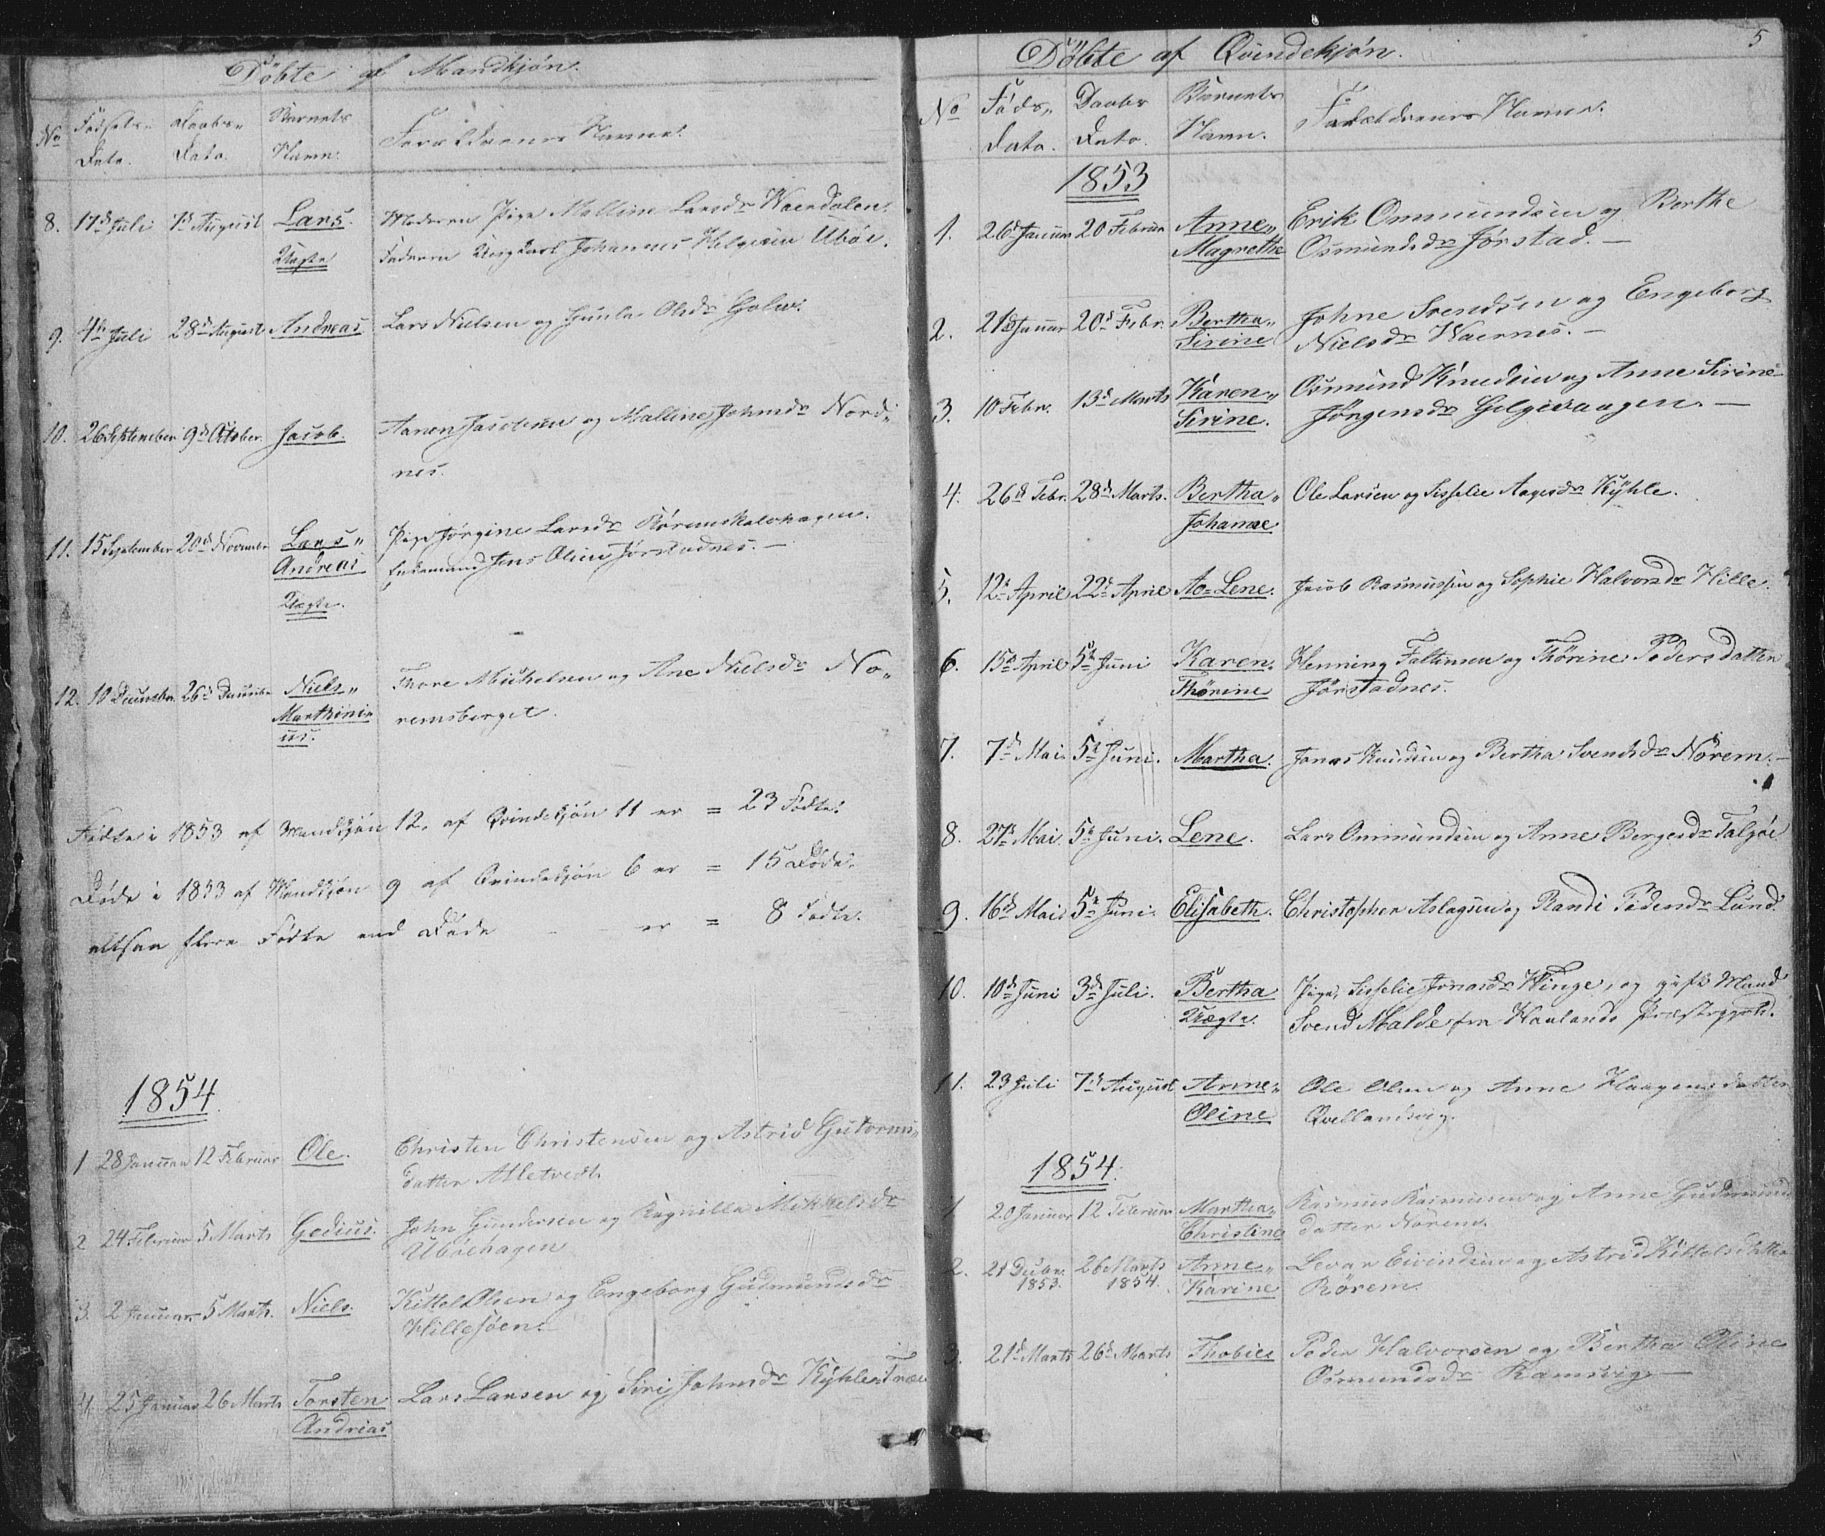 Döbte af Mandkjön.
No Födsels- Data. Daabs- Data. Barnets Navn. Forældrenes Navne.
8. 17d Juli 7d August Lars. Moderen Pige Malline Larsdr Waerdalen.
Uægte Faderen Ungkarl Johannes Helgesen Uböe.
9. 4de Juli 28d August Andreas Lars Nielsen og Gunla Olsdr
10. 26 September 9d October. Jacob. Aanon Jacobsen og Malline Johnsdr Nord„
nes.
11. 15 September 20d November Lars„ Pige Jörgine Larsdr
Andreas Enkemand Jens Olsen Jörstadnes. —
Uægte.
12. 10 December 26d December Niels„ Thore Michelsen og Ane Nielsdr No„
Marthini„ remsberget.
us.
Födte i 1853 af Mandkjön 12. af Qvindekjön 11 er = 23 Födte.
Döde i 1853 af Mandkjön 9 af Qvindekjön 6 er = 15 Döde.
altsaa flere Födte end Döde er = 8 Födte.
1854.
1 28 Januar 12 Februar Ole. Christen Christensen og Astrid Gutorms„
datter Alletvedt.
2 24 Februar 5 Marts Gedius. John Gundersen og Ragnilla Mikkelsdr
Uböehagen
3. 2 Januar 5 Marts. Niels. Kittel Olsen og Engeborg Gudmundsdr
Hillesöen.
4. 25 Januar 26 Marts Torsten Lars Larsen og Siri Johnsdr Kyhle
Andreas
5
Döbte af Qvindekjön.
No Föds„ Data. Daabs Data. Barnets Navn. Forældrenes Navne.
1853
1. 26d Januar 20 Februar Anne„ Erik Ommundsen og Berthe
Magrethe Osmundsdr Jörstad. —
2. 21d Januar 20d Febr. Bertha„ Johne Svendsen og Engeborg
Sirine Nielsdr Waernes. —
3. 10 Febr. 13d Marts Karen„ Osmund Knudsen og Anne Sirine
Sirine. Jörgensdr Helgevaagen. —
4. 26d Febr. 28d Marts. Bertha„ Ole Larsen og Sisselie Aagesdr Kyhle.
Johanne
5. 12d April 22d April Ao=Lene. Jacob Rasmussen og Sophie Halvorsdr Hille.
6. 15d April 5d Juni Karen„ Henning Faltinsen og Thörine Pedersdatter
Thörine Jörstadnes.
7. 7d Mai. 5d Juni. Martha. Jonas Knudsen og Bertha Svendsdr Nörem. —
8. 27d Mai. 5d Juni. Lene. Lars Ommundsen og Anne Bergesdr Talgöe
9. 16d Mai 5d Juni. Elisabeth. Christopher Aslagsen og Randi Pedersdr Lund.
10. 10d Juni 3d Juli. Bertha Pige, Sisselie Jonasdr Winge, og gift Mand
Uægte. Svend Malde fra Haalands Præstegjeld.
11. 23 Juli 7d August Anne„ Ole Olsen og Anne Haagensdatter
Oline Qvellandsvig.
1854.
1 20 Januar 12 Februar Martha„ Rasmus Rasmussen og Anne Gudmunds
Christine datter Nörem.
2. 21 Decbr. 26 Marts Anne„ Levar Eivindsen og Astrid Kittelsdatter
1853. 1854. Karine Rörem.
3. 21d Marts 26d Marts Thobice Peder Halvorsen og Bertha Oline
Osmundsdr Ramsvig —